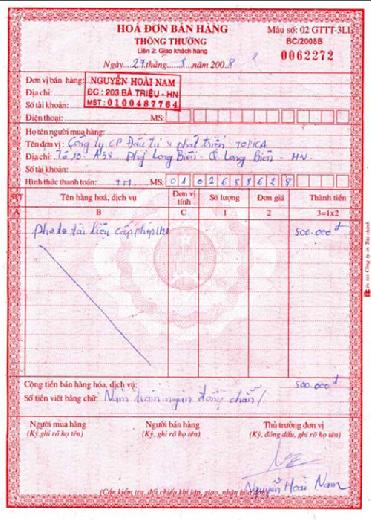 HOÁ ĐƠN BÁN HÀNG Mẫu số: 02 GTTT-3LL
THÔNG THƯỜNG BC/2008B
Liên 2: Giao khách hàng 0062272
Ngày 27 tháng 8 năm 2008
Đơn vị bán hàng: NGUYỄN HOÀI NAM
Địa chỉ: ĐC : 203 BÀ TRIỆU - HN
Số tài khoản: MST : 0100487764
Điện thoại: MS:
Họ tên người mua hàng:
Tên đơn vị: Công ty CP Đầu tư & phát triển TOPICA
Địa chỉ: Tổ 10 - A38 - Phố Long Biên - Q Long Biên - HN
Số tài khoản:
Hình thức thanh toán: TM MS: 0102688628
STT Tên hàng hoá, dịch vụ Đơn vị tính Số lượng Đơn giá Thành tiền
A B C 1 2 3=1x2
Photo tài liệu 500.000đ
Cộng tiền bán hàng hóa, dịch vụ: 500.000đ
Số tiền viết bằng chữ: Năm trăm ngàn đồng chẵn/
Người mua hàng Người bán hàng Thủ trưởng đơn vị
(Ký, ghi rõ họ tên) (Ký, ghi rõ họ tên) (Ký, đóng dấu, ghi rõ họ tên)
Nguyễn Hoài Nam
(Cần kiểm tra, đối chiếu khi lập, giao, nhận